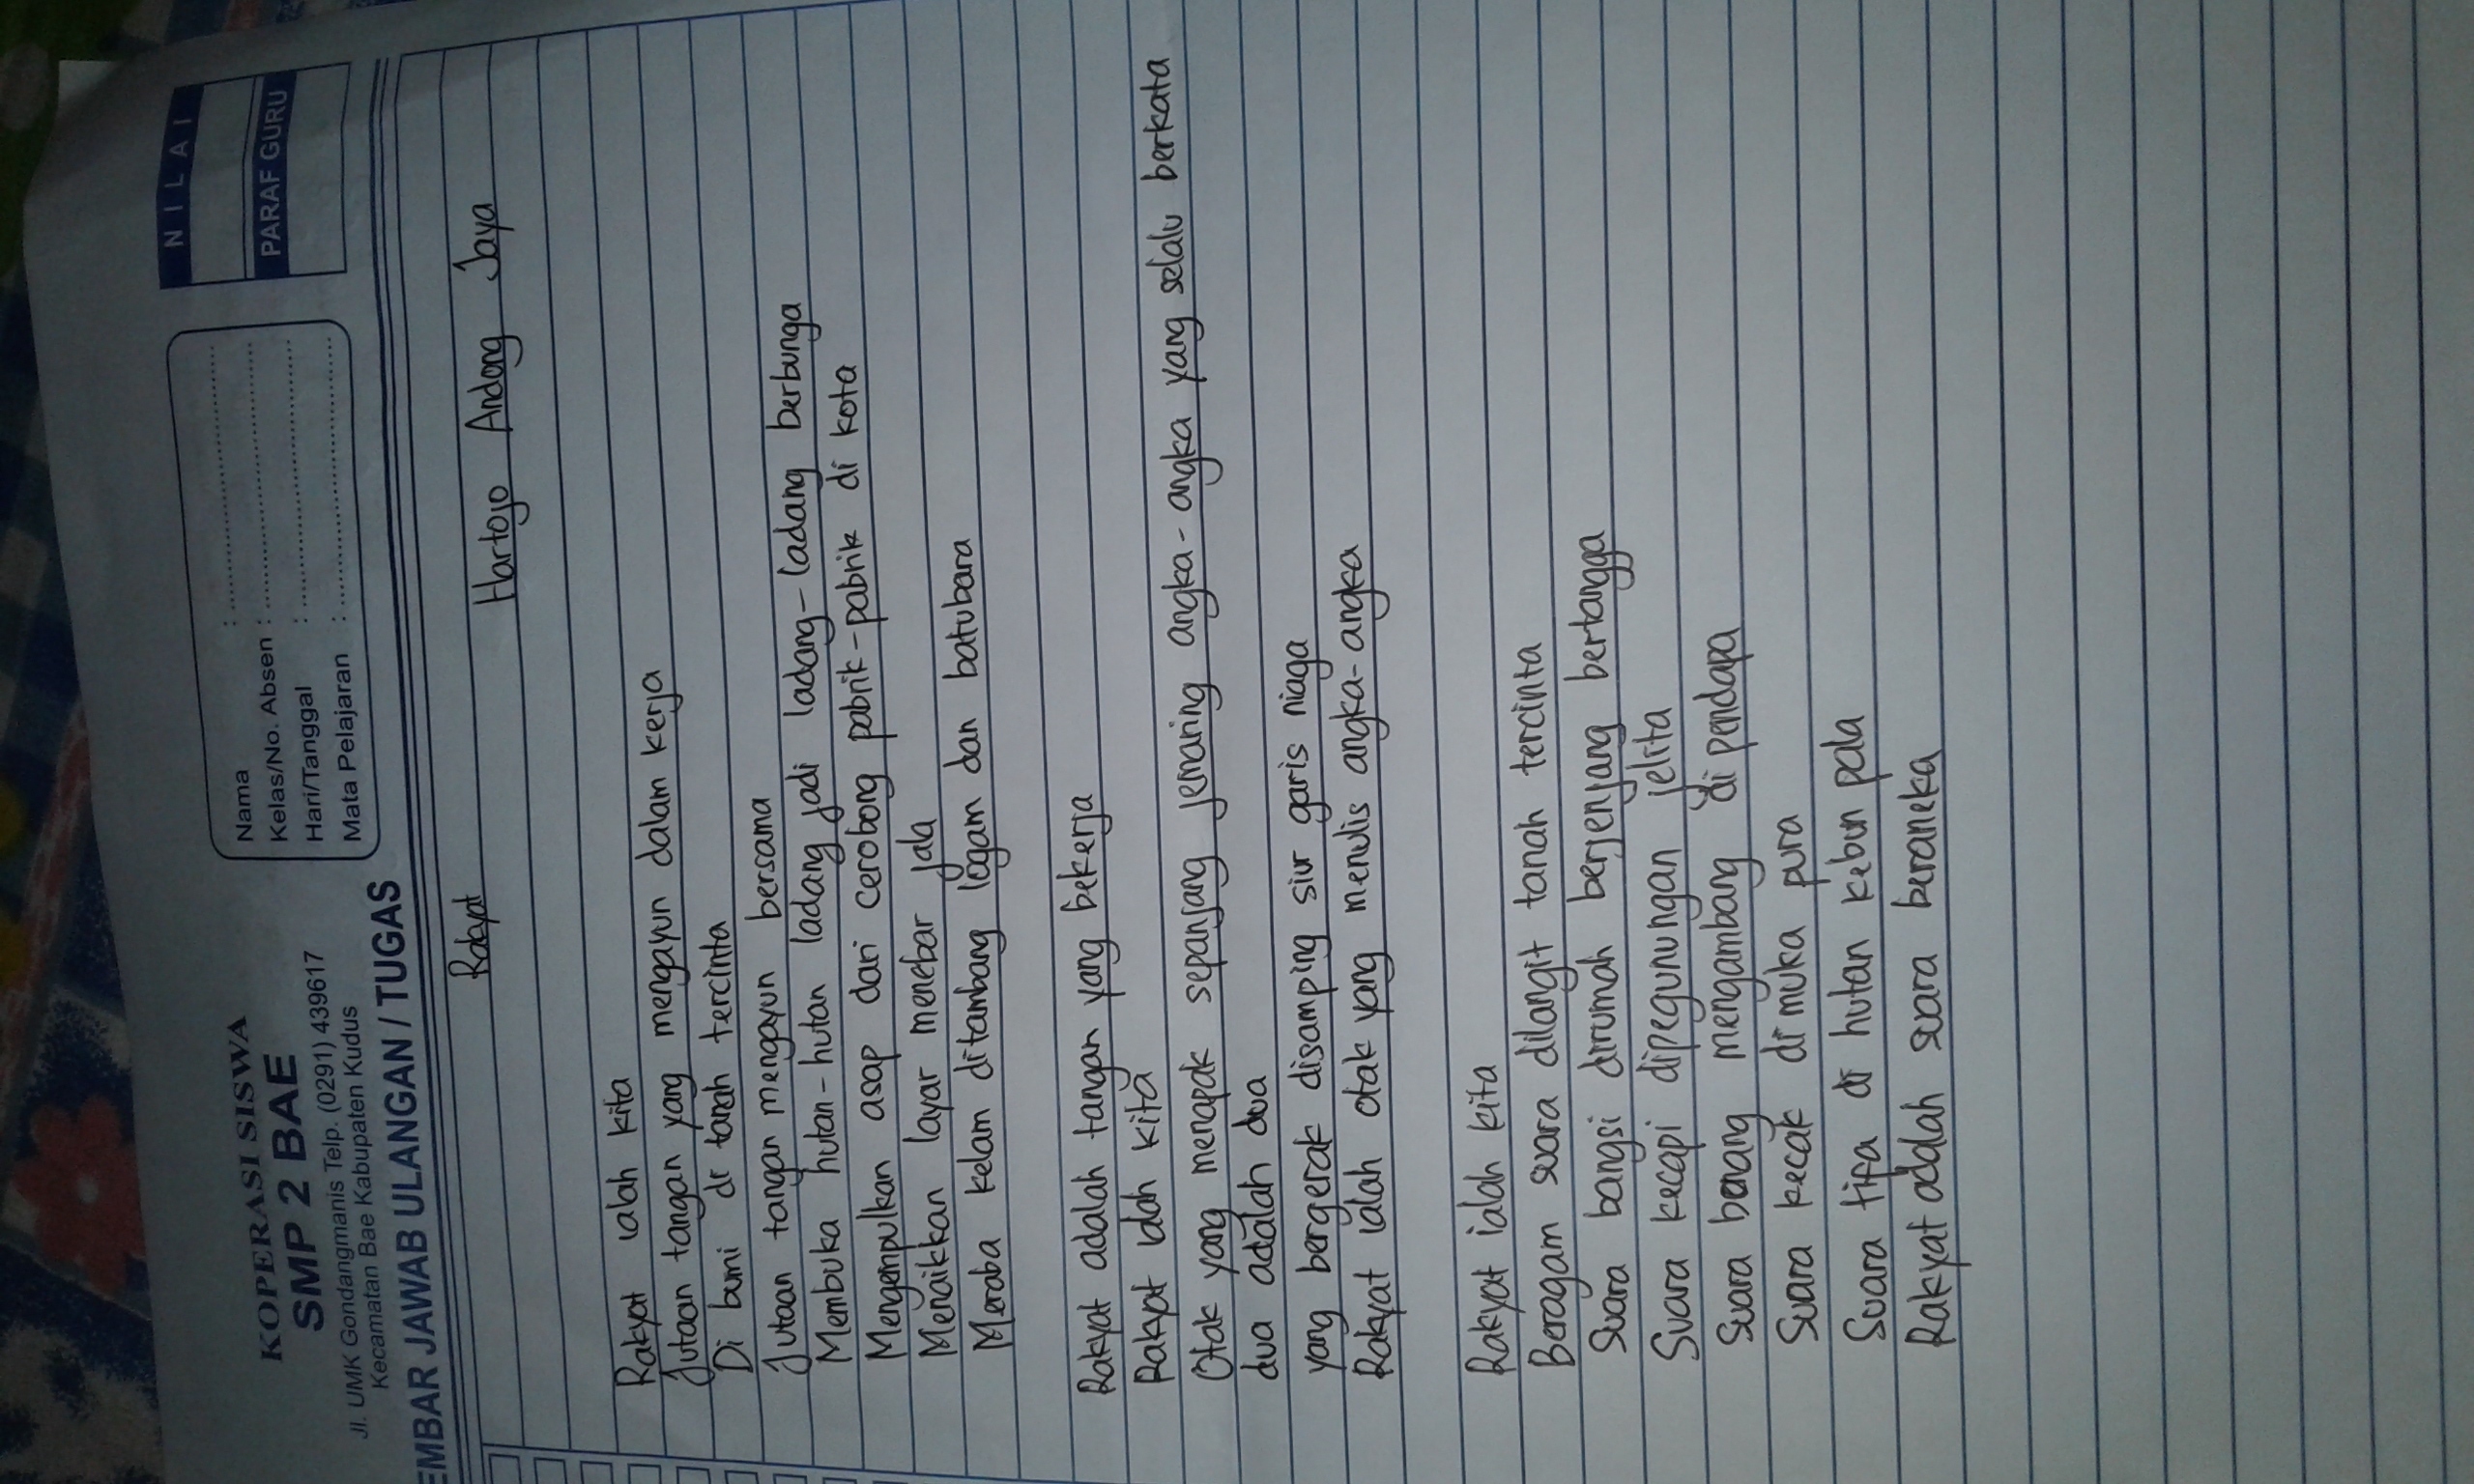 KOPERASI SISWA
SMP 2 BAE
Jl. UMK Gondangmanis Telp. (0291) 439617
Kecamatan Bae Kabupaten Kudus
EMBAR JAWAB ULANGAN / TUGAS
Nama :
Kelas/No. Absen :
Hari/Tanggal :
Mata Pelajaran :
NILAI
PARAF GURU
Rakyat
Hartojo Andong Jaya
Rakyat ialah kita
Jutaan tangan yang mengayun dalam kerja
Di bumi di tanah tercinta
Jutaan tangan mengayun bersama
Membuka hutan-hutan ladang jadi ladang-ladang berbunga
Mengempulkan asap dari cerobong pabrik-pabrik di kota
Menaikkan layar menebar jala
Meraba kelam ditambang logam dan batubara
Rakyat adalah tangan yang bekerja
Rakyat ialah kita
Otak yang menapak sepanjang jemaring angka-angka yang selalu berkata
dua adalah dua
yang bergerak disamping siur garis niaga
Rakyat ialah otak yang menulis angka-angka
Rakyat ialah kita
Beragam suara dilangit tanah tercinta
Suara bangsi dirumah berjenjang bertangga
Suara kecapi dipegunungan jelita
Suara benang mengambang di pendapa
Suara kecak di muka pura
Suara tifa di hutan kebun pala
Rakyat adalah suara beraneka